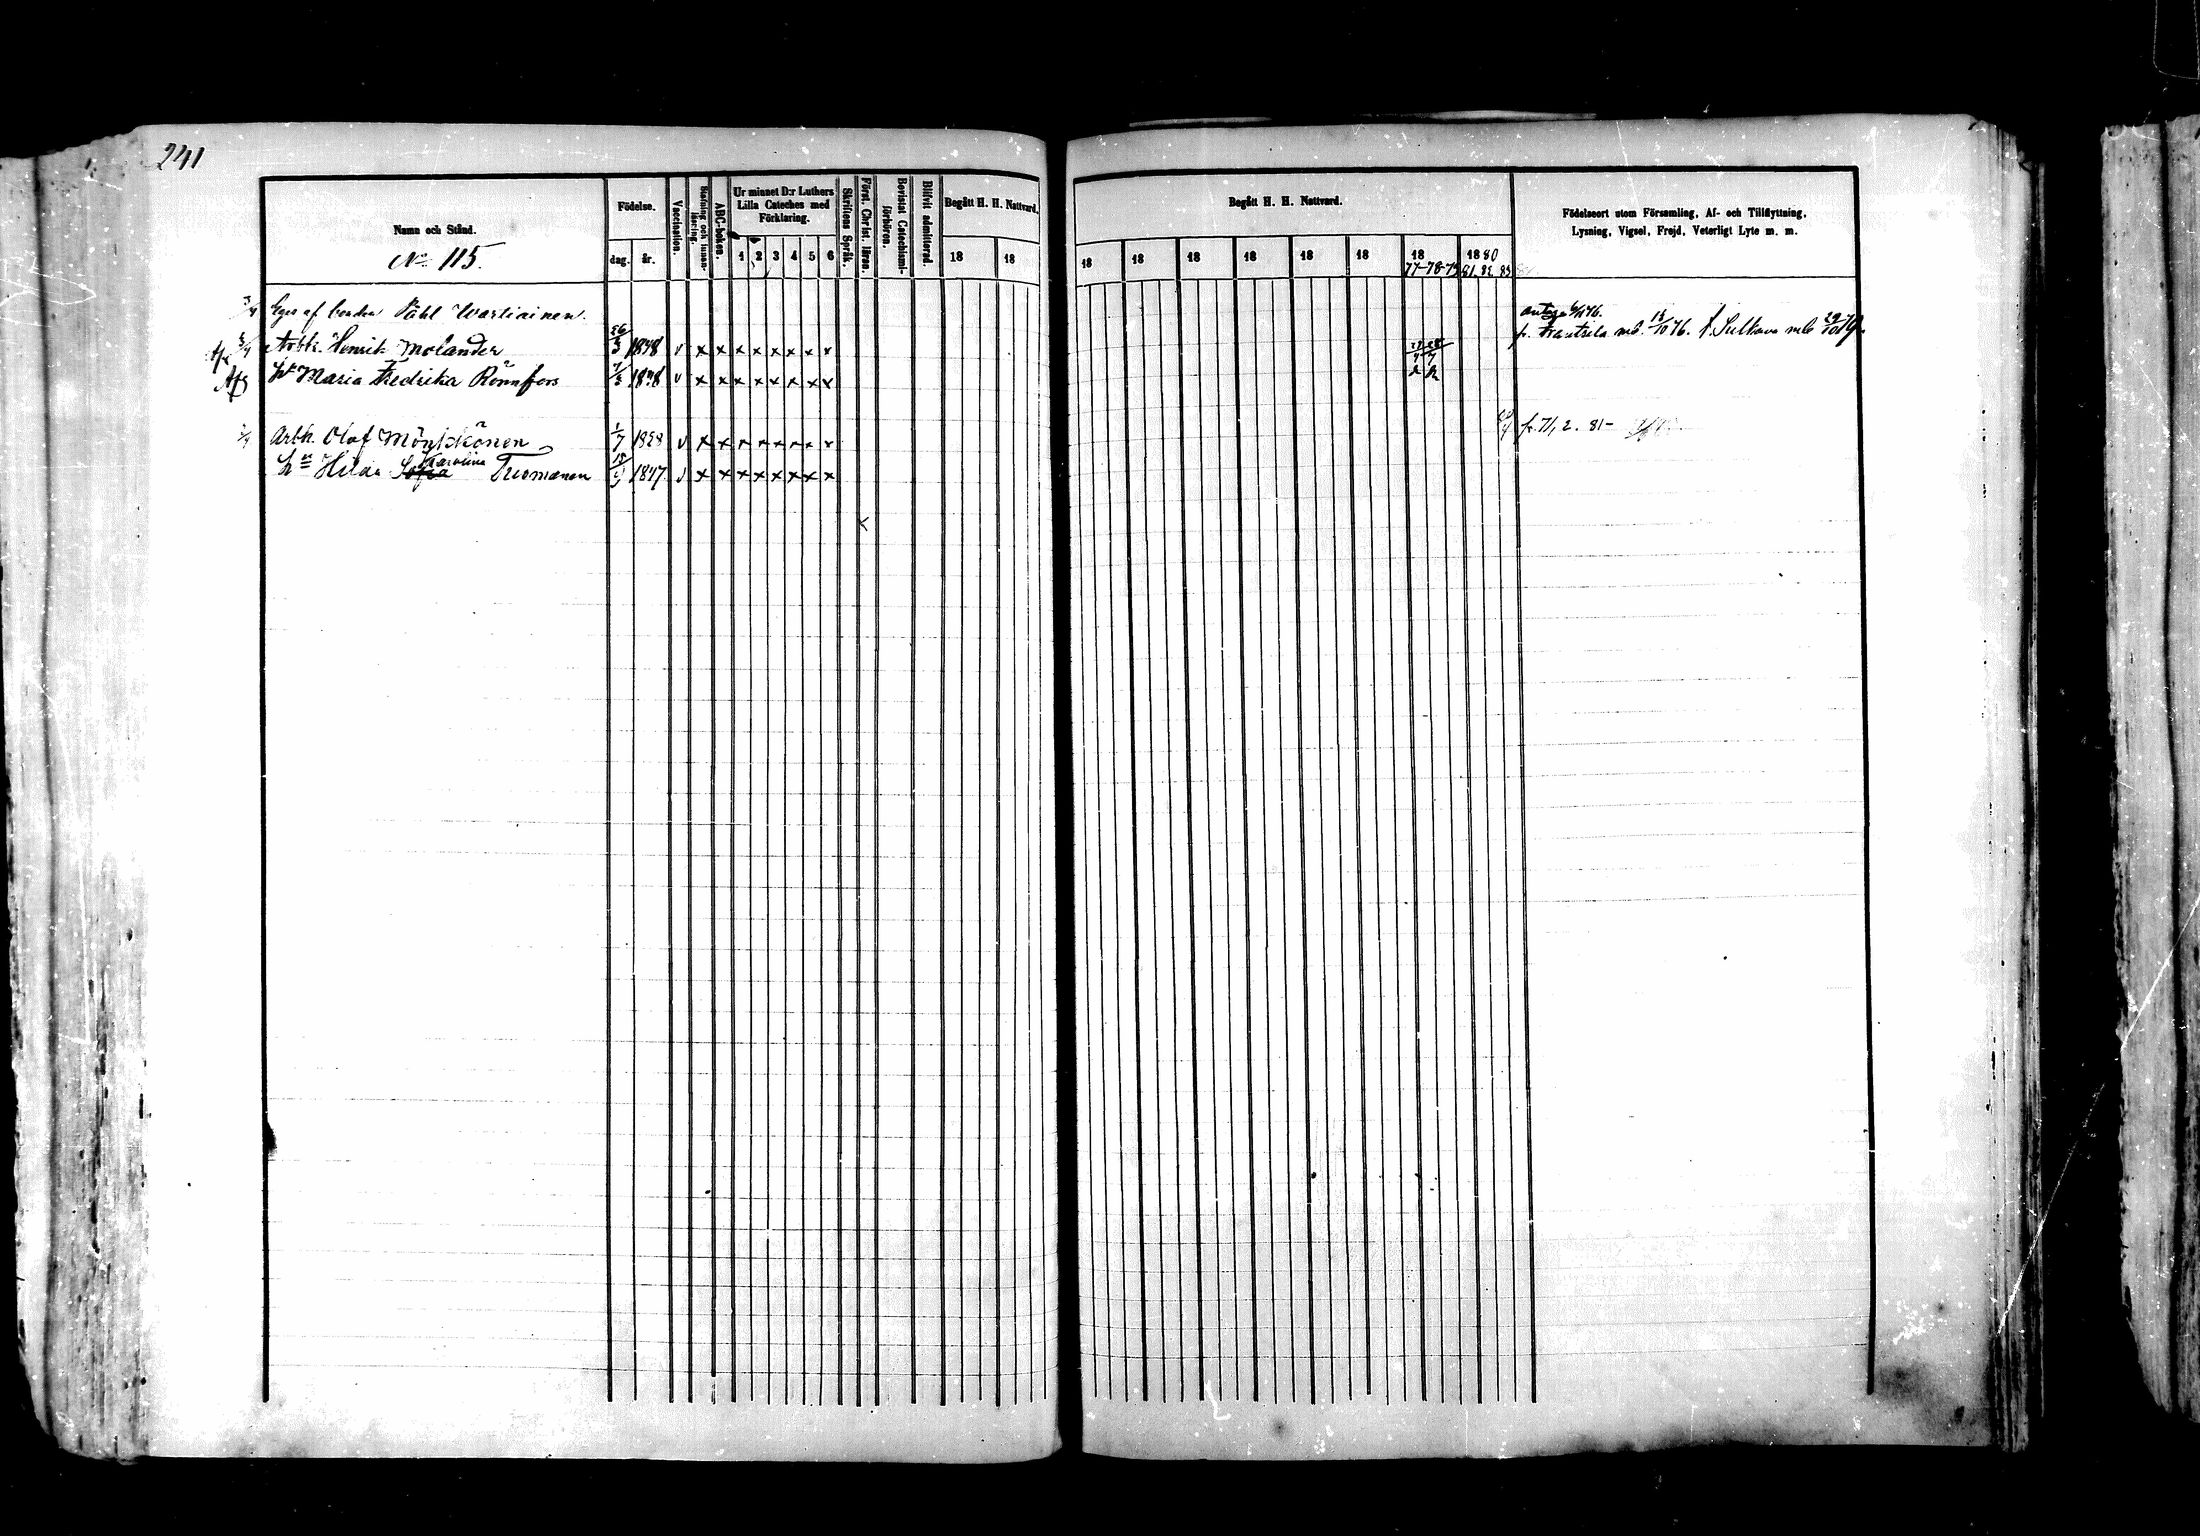 241
Namn och Stånd.
No 115.
Födelse.
dag. år.
Vaccination.
Stafning och innan-läsning.
ABC-boken.
Ur minnet D:r Luthers Lilla Cateches med Förklaring.
1 2 3 4 5 6
Skriftens Språk.
Först. Christ. läran.
Bevistat Catechismi-förhören.
Blifvit admitterad.
Begått H. H. Nattvard.
18 18
Begått H. H. Nattvard.
18 18 18 18 18 18 18 1880
77-78-79 81. 82. 83
Födelseort utom Församling, Af- och Tillflyttning,
Lysning, Vigsel, Frejd, Veterligt Lyte m. m.
Eges af bonden Påhl Wartiainen.
Arbk. Henrik Molander 26/3 1848 v x x x x x x x x
fr. mb. 18/10 76. t. Sulkava mb 29/10 79.
Afg Ht Maria Fredrika Rönnfors 1848 v x x x x x x x x
Arbk. Olof Mönkkönen 1/7 1828 v x x x x x x x x
fr. 71, 2. 81-
Hn Hilda Sofia Karolina 1847. v x x x x x x x x